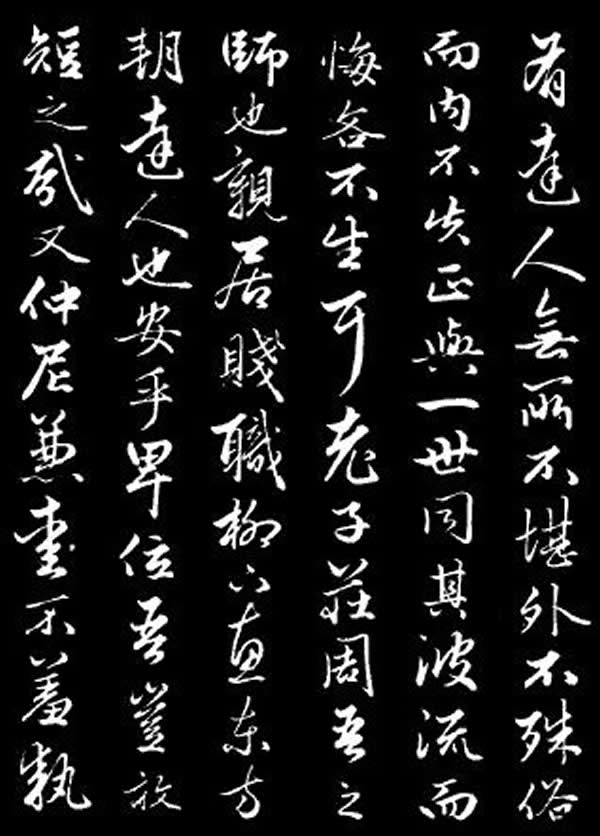 有達人無所不堪外不殊俗
而内不失正與一世同其波流而
悔吝不生耳老子莊周吾之
師也親居賤職柳下惠東方
朝達人也安乎卑位吾豈敢
短之哉又仲尼兼愛不羞執